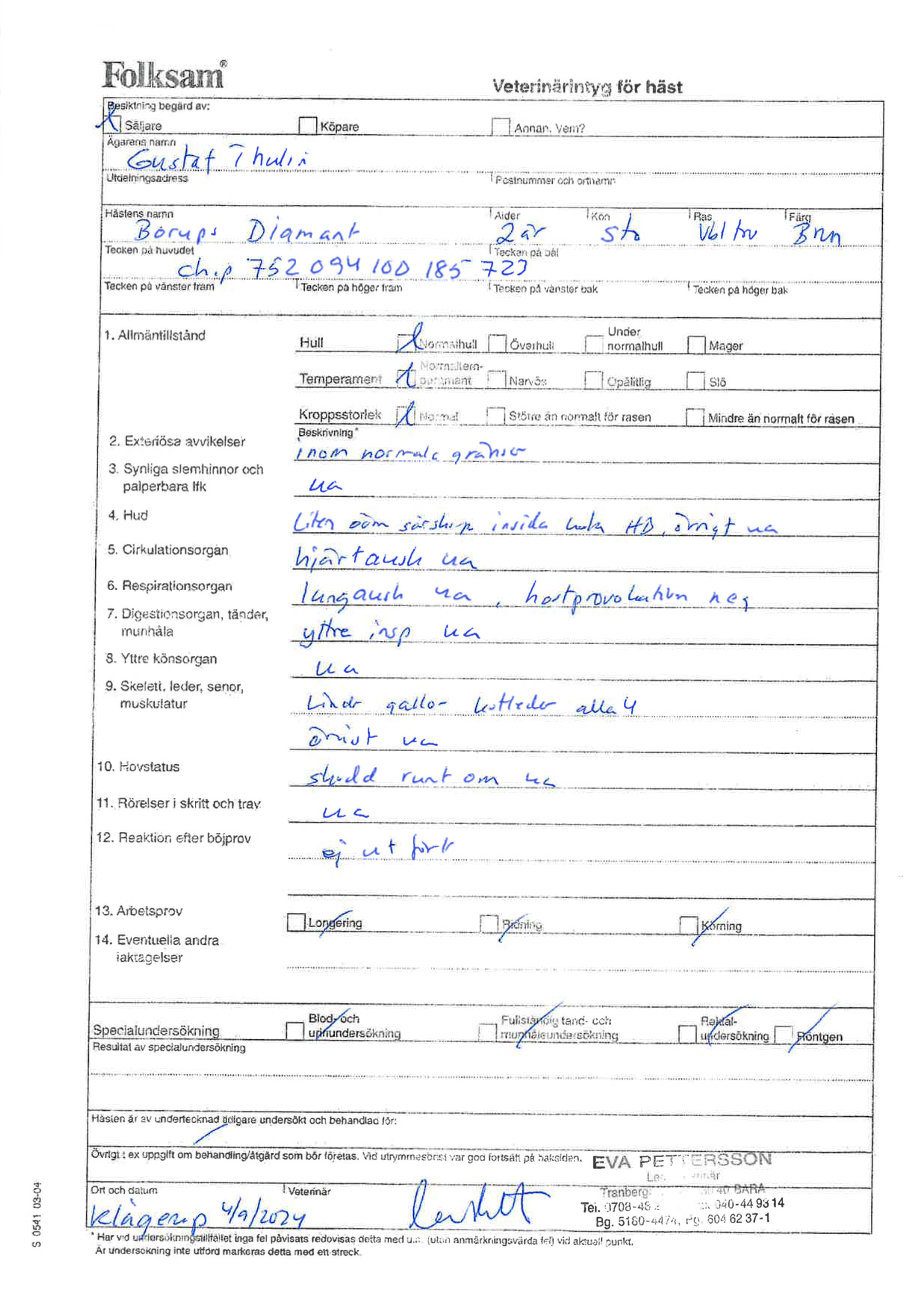 Folksam®
Veterinärintyg för häst
Besiktning begärd av:
Säljare Köpare Annan. Vem?
Ägarens namn
Gustaf Thulin
Utdelningsadress Postnummer och ortnamn
Hästens namn Ålder Kön Ras Färg
Borups Diamant 2 år sto Vbl trv Brn
Tecken på huvudet Tecken på bål
chip 752 094 100 185 723
Tecken på vänster fram Tecken på höger fram Tecken på vänster bak Tecken på höger bak
1. Allmäntillstånd
Hull Normalhull Överhull Under normalhull Mager
Temperament Normaltemperament Nervös Opålitlig Slö
Kroppsstorlek Normal Större än normalt för rasen Mindre än normalt för rasen
Beskrivning*
2. Exteriösa avvikelser inom normala gränser
3. Synliga slemhinnor och
palperbara lfk ua
4. Hud Liten ööm sårskorp insida HB, övrigt ua
5. Cirkulationsorgan hjärtausk ua
6. Respirationsorgan lungausk ua, hostprovokation neg
7. Digestionsorgan, tänder,
munhåla yttre insp ua
8. Yttre könsorgan ua
9. Skelett, leder, senor,
muskulatur Lindr gallor kotleder alla 4
övrigt ua
10. Hovstatus skodd runt om ua
11. Rörelser i skritt och trav ua
12. Reaktion efter böjprov ej utfört
13. Arbetsprov Longering Ridning Körning
14. Eventuella andra
iakttagelser
Specialundersökning Blod- och urinundersökning Fullständig tand- och munhåleundersökning Rektalundersökning Röntgen
Resultat av specialundersökning
Hästen är av undertecknad tidigare undersökt och behandlad för:
Övrigt t ex uppgift om behandling/åtgärd som bör företas. Vid utrymmesbrist var god fortsätt på baksidan.
EVA PETTERSSON
Tranberg BARA
Tel. 0708-48 040-44 93 14
Bg. 5180-4474, Pg. 604 62 37-1
Ort och datum Veterinär
Klågerup 4/9/2024
* Har vid undersökningstillfället inga fel påvisats redovisas detta med u.a. (utan anmärkningsvärda fel) vid aktuell punkt.
Är undersökning inte utförd markeras detta med ett streck.
S 0541 03-04